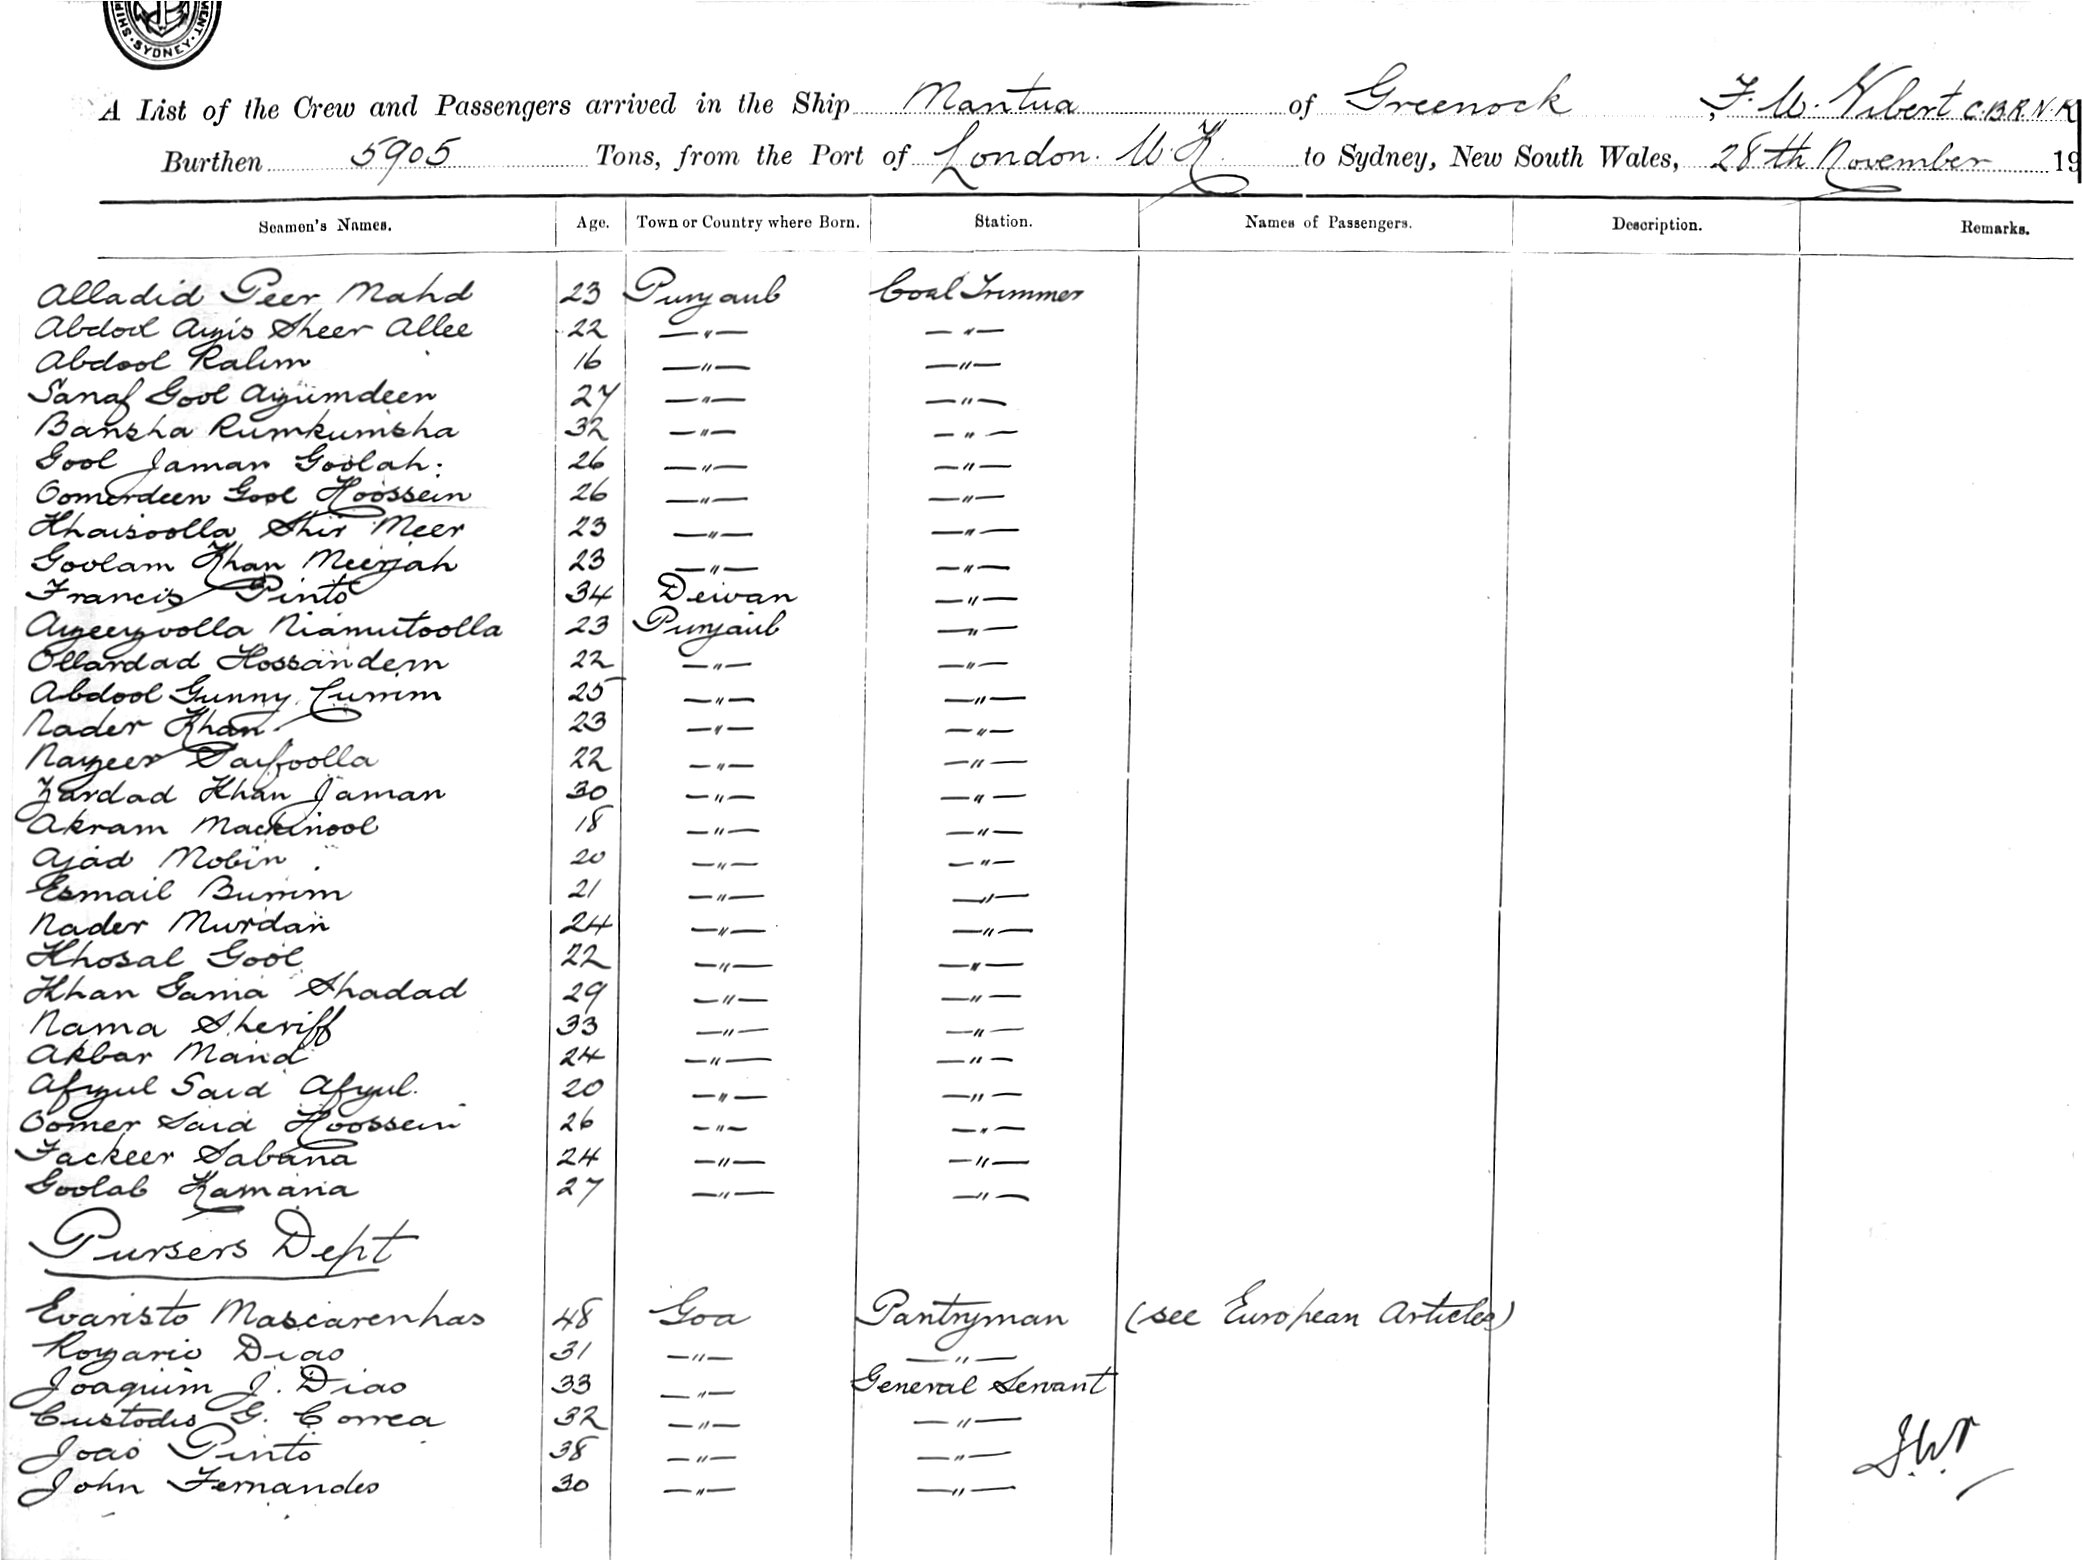 SHIPPING
SYDNEY
A List of the Crew and Passengers arrived in the Ship Mantua of Greenock, F. W. Vibert C.B.R.N.R
Burthen 5905 Tons, from the Port of London. U.K. to Sydney, New South Wales, 28th November 19
Seamen's Names. Age. Town or Country where Born. Station. Names of Passengers. Description. Remarks.
Alladid Peer Mahd 23 Punjaub Coal Trimmer
Abdool Ayis Sheer Allee 22 —"— —"—
Abdool Ralim 16 —"— —"—
Sanaf Gool Ayumdeen 27 —"— —"—
Bansha Rumkumsha 32 —"— —"—
Gool Jaman Goolah. 26 —"— —"—
Oomerdeen Gool Hoossein 26 —"— —"—
Khaisoolla Shir Meer 23 —"— —"—
Goolam Khan Meerjah 23 —"— —"—
Francis Pinto 34 Dewan —"—
Ayeezoolla Niamutoolla 23 Punjaub —"—
Ollardad Hossandem 22 —"— —"—
Abdool Gunny Currim 25 —"— —"—
Nader Khan 23 —"— —"—
Nazeer Saifoolla 22 —"— —"—
Zardad Khan Jaman 30 —"— —"—
Akram Mackinool 18 —"— —"—
Ajad Mobin 20 —"— —"—
Esmail Burrim 21 —"— —"—
Nader Murdan 24 —"— —"—
Khosal Gool 22 —"— —"—
Khan Gama Shadad 29 —"— —"—
Nama Sheriff 33 —"— —"—
Akbar Mand 24 —"— —"—
Afzul Said Afzul. 20 —"— —"—
Oomer Said Hoossein 26 —"— —"—
Fackeer Sabana 24 —"— —"—
Goolab Kamana 27 —"— —"—
Pursers Dept
Evaristo Mascarenhas 48 Goa Pantryman (see European Articles)
Rozario Dias 31 —"— —"—
Joaquim J. Dias 33 —"— General Servant
Custodio G. Correa 32 —"— —"—
Joao Pinto 38 —"— —"—
John Fernandes 30 —"— —"—